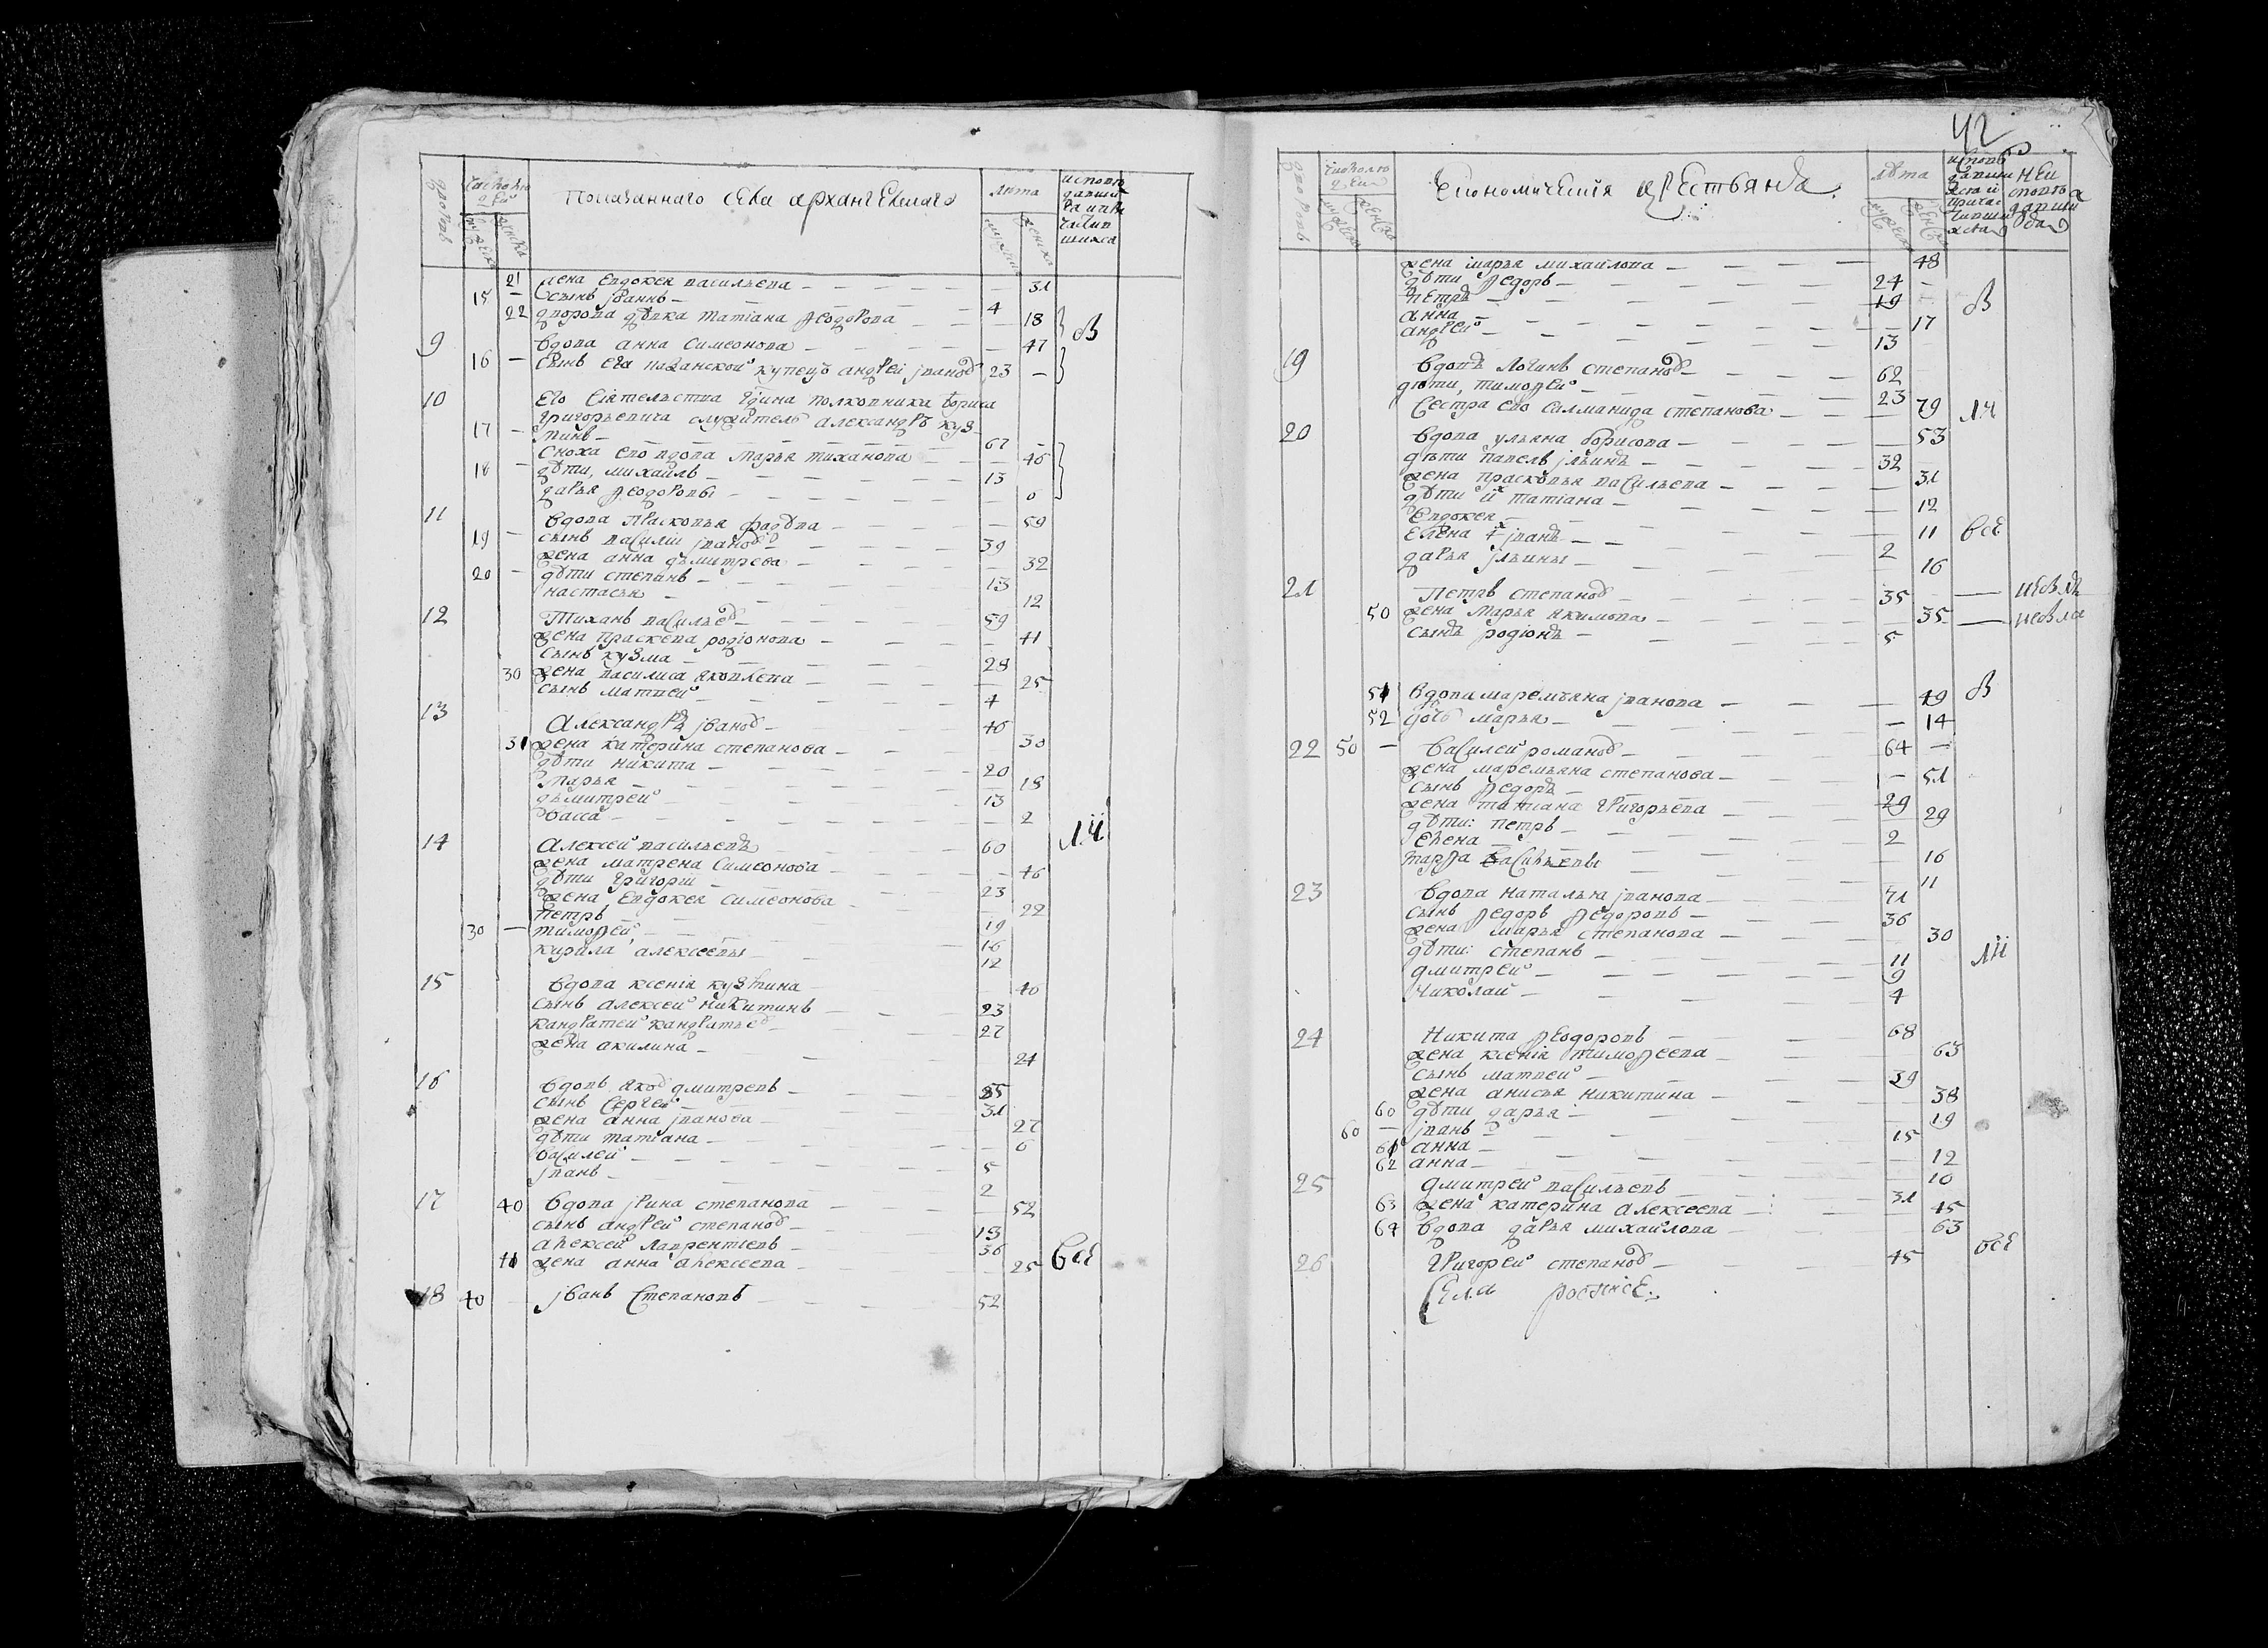 Показаннаго села архангелскаго
лѣта
21 жена евдокея васильева 31
15 — сынъ iваннъ 4
22 дворова дѣвка татiана ѳеодорова 18
9 вдова анна симеонова 47
16 — сынъ ега казанской купецъ андрей iвановъ 23 —
10 его сiятельства гдина полковника бориса
григорьевича служитель александръ куз
17 — минъ 67 —
сноха ево вдова марья тиханова 45
18 — дѣти, михайлъ 13
дарья ѳеодоровы
11 вдова прасковья 59
19 — сынъ василiи iвановъ 39
жена анна дьмитрева 32
20 — дѣти степанъ 13
настасья 12
12 Тиханъ васильевъ 59
жена праскева родiонова 41
сынъ кузма 28
30 жена василиса яковлева 25
сынъ матвей 4
13 Александръ iвановъ 46
31 жена катерина степанова 38
дѣти никита 20
марья 18
дьмитрей 13
васса 2
14 Алексей васильевъ 60
жена матрена симеонова 46
дѣти григорiи 23
жена евдокея симеонова 22
петръ 19
30 — тимоѳей 16
кирила алексеевы 12
15 вдова ксенiя кузмина 40
сынъ алексей никитинъ 23
кандратей кандратьевъ 27
жена акилина 24
16 вдовъ яковъ дмитревъ 55
сынъ сергей 31
жена анна iванова 27
дѣти татiана 6
василей 5
iванъ 2
17 40 вдова iрина степанова 52
сынъ андрей степановъ 13
алексей лаврентiевъ 36
41 жена анна алексеева 25 все
18 40 iванъ степановъ 52
42
Економическiя крестьяня
лѣта
жена марья михайлова 48
дѣти ѳедоръ 24
петръ 19
анна 17
андрей 13
19 вдовъ логинъ степановъ 62
дѣти, тимоѳей 23
сестра ево салманида степанова 79
20 вдова ульяна борисова 53
дѣти павелъ iльинъ 32
жена прасковья васильева 31
дѣти их татiана 12
евдокея 11 все
елена iванъ 2
дарья iльины 16
21 Петръ степановъ 35
50 жена марья якимова 35
сынъ родiонъ 5
51 вдова маремьяна iванова 49
52 дочь марья 14
22 50 — василей романовъ 64 —
жена маремьяна степанова — 51
сынъ ѳедоръ 29
жена татiана григорьева 29
дѣти: петръ 2
елена 16
марѳа васильевы 11
23 вдова наталья iванова 71
сынъ ѳедоръ ѳедоровъ 36
жена марья степанова 30
дѣти: степанъ 11
дмитрей 9
николай 4
24 Никита ѳеодоровъ 68
жена ксенiя тимоѳеева 63
сынъ матвей 39
жена анисья никитина 38
60 дѣти дарья 19
60 — iванъ 15
61 анна 12
62 анна 10
25 дмитрей васильевъ 31
63 жена катерина алексеева 45
64 вдова дарья михайлова 63
26 григорей степановъ 45 все
села